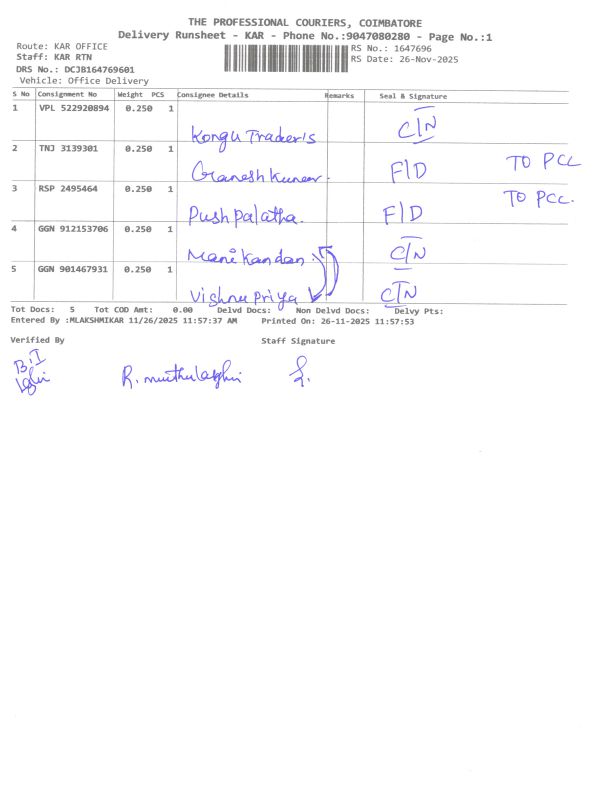 THE PROFESSIONAL COURIERS, COIMBATORE
Delivery Runsheet - KAR - Phone No.:9047080280 - Page No.:1
Route: KAR OFFICE
RS No.: 1647696
Staff: KAR RTN
RS Date: 26-Nov-2025
DRS No.: DCJB164769601
Vehicle: Office Delivery
S No Consignment No Weight PCS Consignee Details Remarks Seal & Signature
1 VPL 522920894 0.250 1 Kongu Trader's C/N
2 TNJ 3139301 0.250 1 Ganesh Kumar. F/D TO PCC
3 RSP 2495464 0.250 1 Push palatha. F/D TO PCC.
4 GGN 912153706 0.250 1 Mani kandan C/N
5 GGN 901467931 0.250 1 Vishnu Priya C/N
Tot Docs: 5 Tot COD Amt: 0.00 Delvd Docs: Non Delvd Docs: Delvy Pts:
Entered By :MLAKSHMIKAR 11/26/2025 11:57:37 AM Printed On: 26-11-2025 11:57:53
Verified By Staff Signature